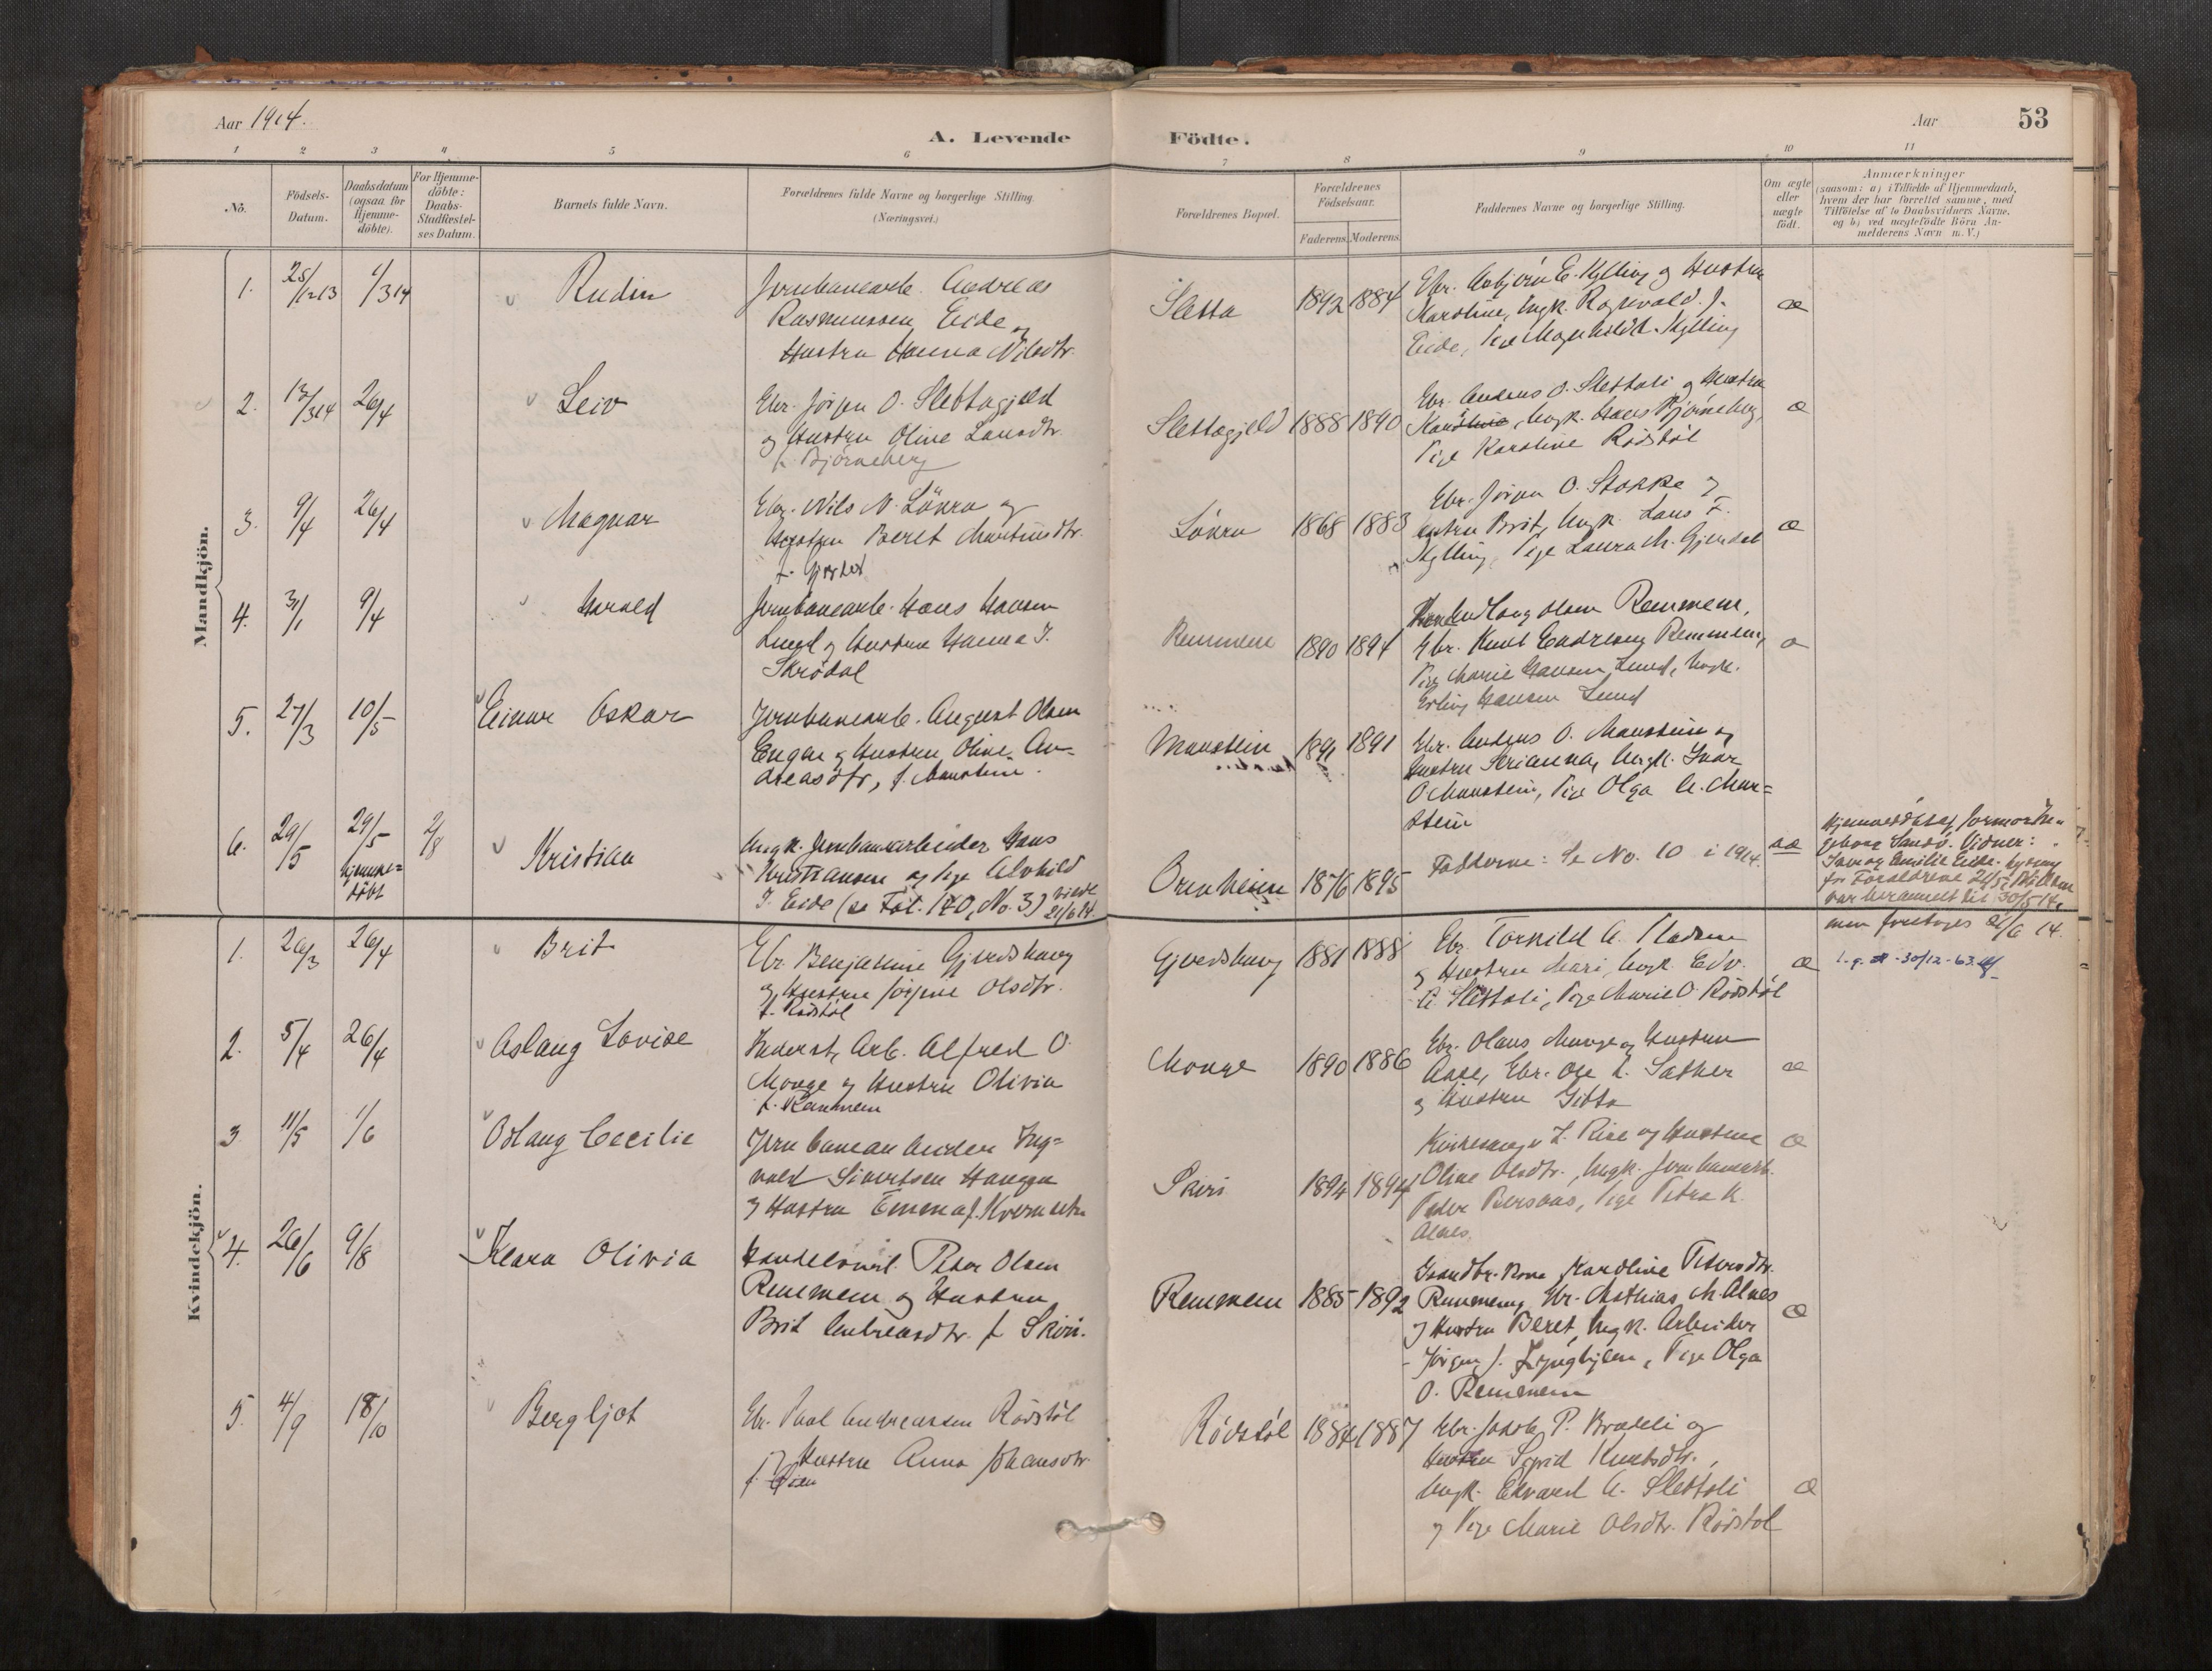 Aar 1914.
A. Levende
Födte.
Aar
53
1 2 3 4 5 6 7 8 9 10 11
No.
Födsels-
Datum.
Daabsdatum
(ogsaa for
Hjemme-
döbte).
For Hjemme-
döbte:
Daabs-
Stadfæstel-
ses Datum.
Barnets fulde Navn.
Forældrenes fulde Navne og borgerlige Stilling.
(Næringsvei.)
Forældrenes Bopæl.
Forældrenes
Födselsaar.
Faderens. Moderens.
Faddernes Navne og borgerlige Stilling.
Om ægte
eller
uægte
födt.
Anmærkninger
(saasom: a) i Tilfælde af Hjemmedaab,
hvem der har forrettet samme, med
Tilföielse af to Daabsvidners Navne.
og b) ved uægtefödte Börn An-
melderens Navn m. V.)
Mandkjön.
1. 25/12 13 1/3 14 Rudin
Jernbanearb. Andreas
Rasmussen Eide og
Hustru Hanna Nilsdtr.
Sletta 1892 1884
Ebr. Asbjörn E. Kylling og Hustru
Karoline, Ungk. Ragnvald J.
Eide, Pige Magnhild A. Kylling
æ
2. 13/3 14 26/4 Leiv
Ebr. Jörgen O. Slettagjeld
og Hustru Oline Larsdtr.
f. Björneberg
Slettagjeld 1888 1890
Ebr. Anders O. Slettali og Hustru
Ungk. Hans Björneberg,
Pige Karoline Rödstöl
æ
3. 9/4 26/4 Magnar
Ebr. Nils N. Lönra og
Hustru Beret Martinusdtr.
Lönra 1868 1883
Ebr. Jörgen O. Stokke og
Hustru Brit, Ungk. Lars T.
Kylling, Pige Laura M. Gjerdet
æ
4. 3/1 9/4 Harald
Jernbanearb. Hans Hansen
Lund og Hustru Hanna J.
Skrödal
Remmem 1890 1894
Olsen Remmem,
Ebr. Knut Endresen Remmem,
Pige Marie Hansen Lund, Ungk.
Erling Hansen Lund
æ
5. 27/3 10/5 Einar Oskar
Jernbanearb. August Olsen
Engan og Hustru Oline An-
dreasdtr, f. Manstein.
Manstein 1891 1891
Ebr. Anders O. Manstein og
Hustru Serianna, Ungk. Ivar
O. Manstein, Pige Olga A. Man=
stein
6. 29/5 29/5 2/8 Kristian
hjemme=
döbt
Ungk. Jernbanearbeider Hans
Kristiansen og Pige Alvhild
J. Eide (se Fol. 170, No. 3) viede
21/6 14.
Orenheim 1876 1895
Fadderne: Se No. 10 i 1914.
Hjemmedöbt af Jormor In-
geborg Sandö. Vidner:
Ivar og Emilie Eide.
var berammet til 30/5 14,
men foretoges 21/6 14.
Kvindekjön.
1. 26/3 26/4 Brit
Ebr. Benjamin Gjerdshaug
og Hustru Jörgine Olsdtr.
f. Rödstöl
Gjerdshaug 1881 1888
Ebr. Torkild A. Fladen
og Hustru Mari, Ungk. Edv.
A. Slettali, Pige Marie O. Rödstöl
æ
30/12-63.
2. 5/4 26/4 Aslaug Lovise
Arb. Alfred O.
Monge og Hustru Olivia
f. Remmem
Monge 1890 1886
Ebr. Olaus Monge og Hustru
Aase, Ebr. Ole L. Sæther
og Hustru Gitta
æ
3. 11/5 1/6 Oslaug Cecilie
Jernbanearbeider Ing=
vald Sivertsen Haugen
og Hustru Emma f. Kvernsetr.
Skiri 1894 1894
Kirkesanger L. Rise og Hustru
Oline Olsdtr., Ungk. Jernbanearb.
Peder Bersaas, Pige Petra K.
Alnes.
æ
4. 26/6 9/8 Klara Olivia
Handelsmd. Peter Olsen
Remmem og Hustru
Brit Andreasdtr. f. Skiri.
Remmem 1885 1892
Gaardbr. Kone Karoline Petersdtr.
Remmem, Ebr. Mathias M. Alnes
og Hustru Beret, Ungk. Arbeider
Jörgen J. Lyngheim, Pige Olga
O. Remmem
æ
5. 4/9 18/10 Bergljot
Ebr. Paul Andreassen Rödstöl
og Hustru Anna Johansdtr.
f. Öien
Rödstöl 1884 1887
Ebr. Jakob P. Brudeli og
Hustru Sigrid Knutsdtr.,
Ungk. Edvard A. Slettali
og Pige Marie Olsdtr. Rödstöl
æ